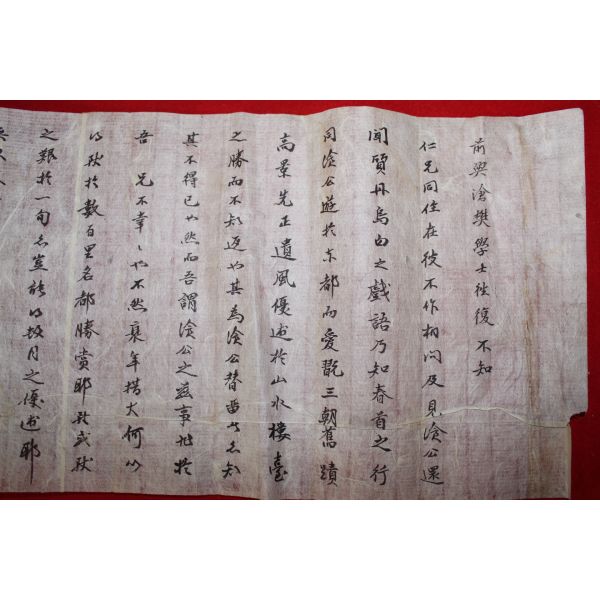 前與滄樊學士往復不知
仁兄同住在彼不作相問及見滄公還
聞質丹烏白之戲語乃知春首之行
同滄公遊於東都而愛翫三朝舊蹟
高景先正遺風優遊於山水樓臺
之勝而不知返也其為滄公替留者亦知
其不得已也然而吾謂滄公之茲事非於
吾 兄不幸之也不然衰年措大何以
得耿於數百里名都勝賞耶 或耿
之艱於一旬亦豈能得數月之優遊耶